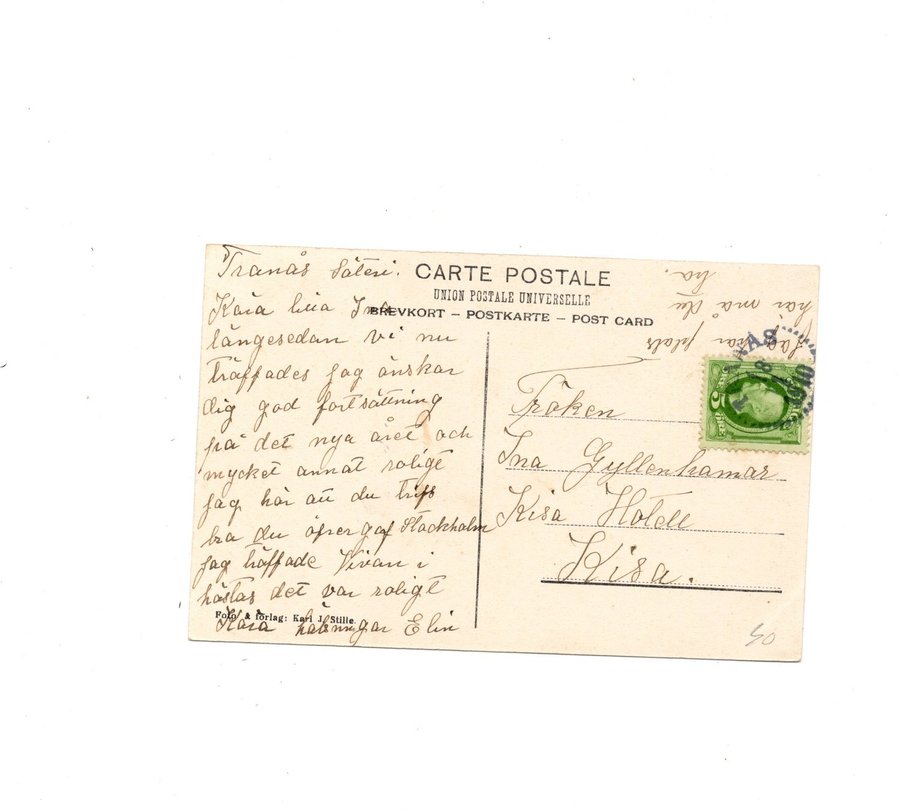 Tranås Säteri.
CARTE POSTALE
UNION POSTALE UNIVERSELLE
BREVKORT – POSTKARTE – POST CARD
Kära lilla Ina
längesedan vi nu
träffades jag önskar
dig god fortsättning
på det nya året och
mycket annat roligt
jag hör att du trifs
bra du öfvergaf Stockholm
jag träffade Vivan i
höstas det var roligt
Kära hälsningar Elin
Foto. & förlag: Karl J. Stille.
plats
här må du
ha.
NÅS
8
1910
5
5
Fröken
Ina Gyllenhamar
Kisa Hotell
Kisa.
50